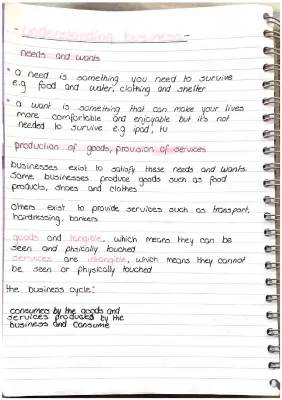 - understanding business -
needs and wants
• a need is something you need to survive
e.g food and water, clothing and shelter
• a want is something that can make your lives
more comfortable and enjoyable but it's not
needed to survive e.g ipad, tv
production of goods, provision of services
businesses exist to satisfy these needs and wants.
Some businesses produce goods such as food
products, shoes and clothes
others exist to provide services such as transport,
hairdressing, bankers
goods and tangible, which means they can be
seen and phsically touched
services are intangible, which means they cannot
be seen or physically touched
the business cycle:
consumed by the goods and
services produced by the
business and consume